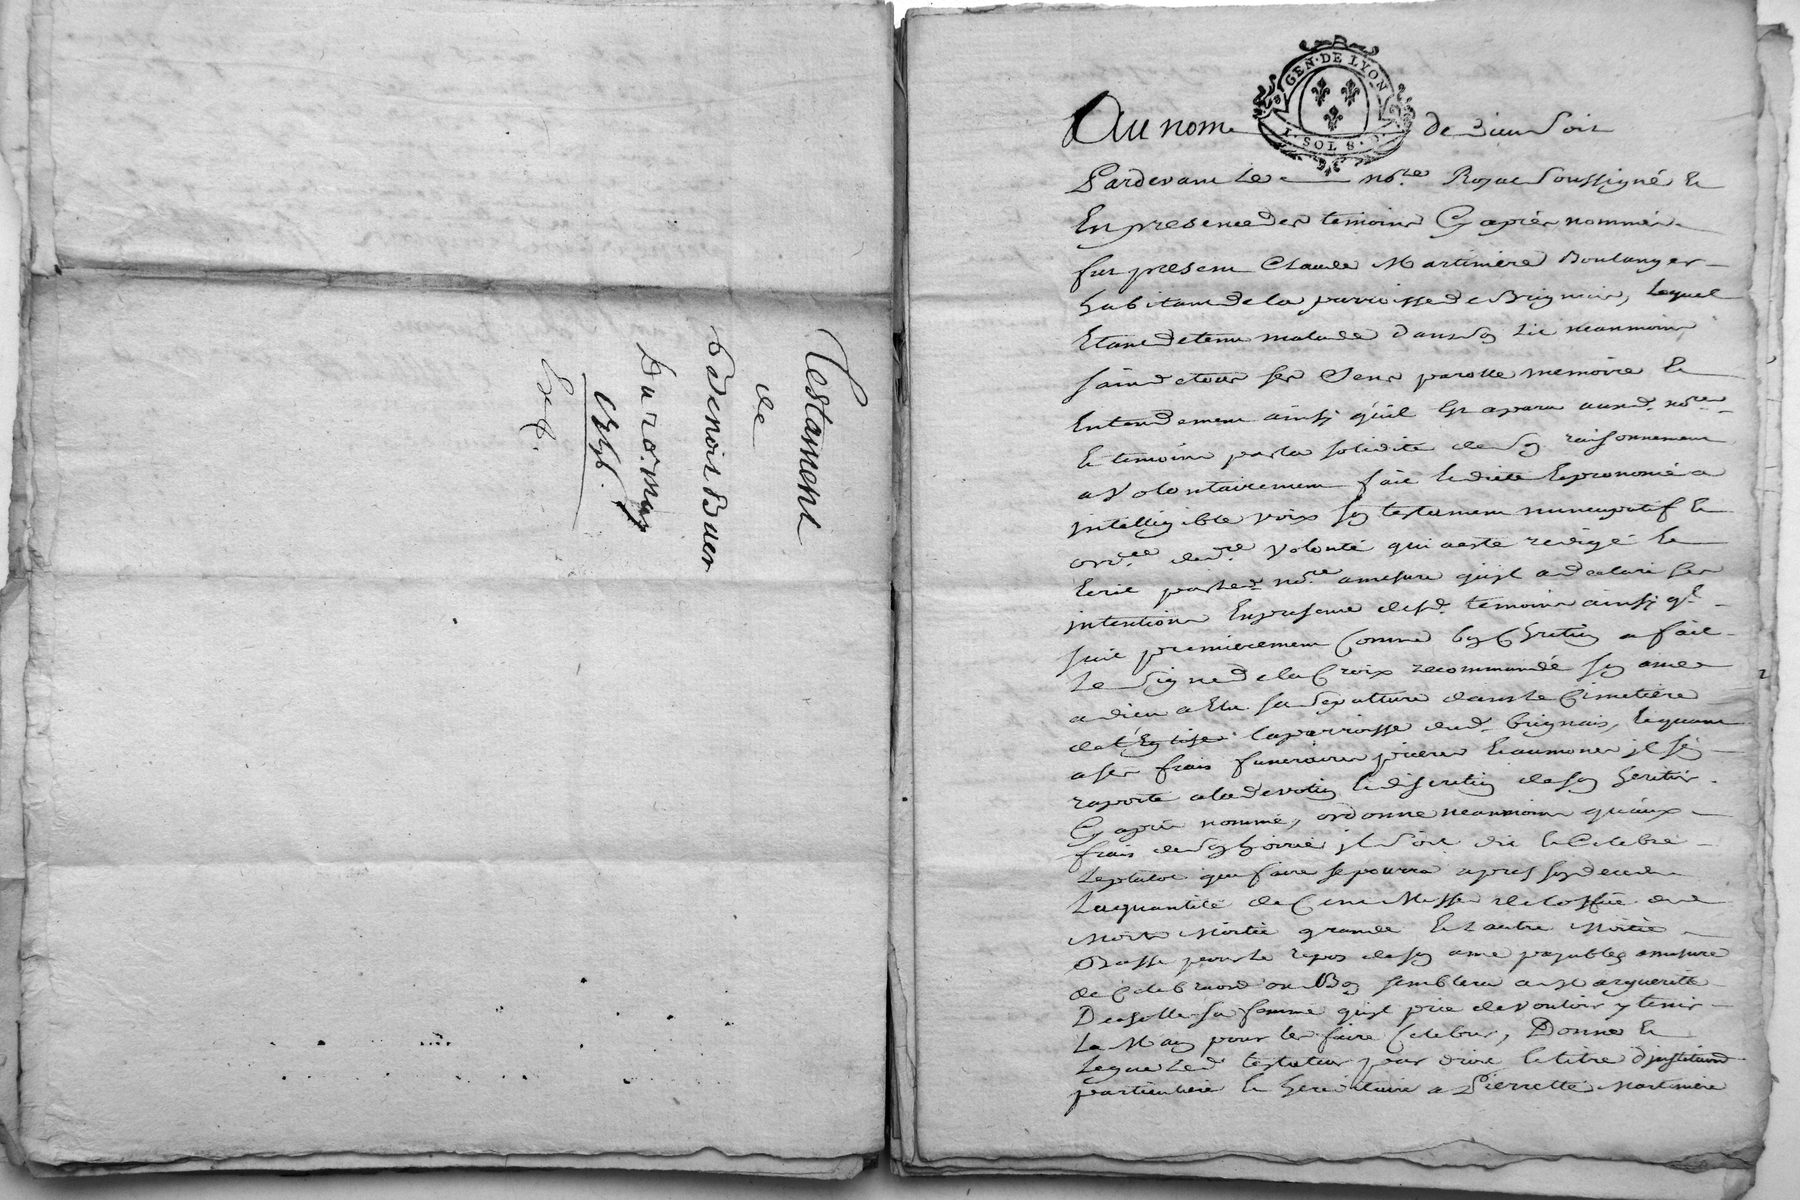 Testament
de
Benoist Buer
Du 10 may
Exp.
GEN. DE LYON
1. SOL 8. D.
Au nom de Dieu soit
Pardevant Le nore. Royal soussigné Et
En presence des temoins Cy apres nommés
fut present Claude Martiniere Boulanger
habitant de la parroisse de Brignais, Lequel
Etant detenu malade dans so lit neanmoins
sain de tous ses sens parolle memoire Et
Entendement ainsy qu'il Est aparu audt. nore.
Et temoins par la solidité de so raisonnement
a Volontairement fait Et dicté Et prononcé a
intelligible voix so testament nuncupatif Et
ordee. de dre. Volonté qui a esté redigé Et
Ecrit par led. nore. a mesure qu'il a declaré ses
intentions En presence desd. temoins ainsy ql.
suit premierement Comme bo Chretie a fait
Le signe de la Croix recommandé so ame
a dieu a Elu sa Sepulture dans Le Cimetiere
de l'Eglise La parroisse dud. brignais, Et quant
a ses frais funeraires prieres Et aumones il s'e
raporte a la devotio Et discretio de so heritier
Cy apres nommé, ordonne neanmoins qu'aux
frais de so hoirie il soit dit Et Celebré
Le plutot que faire se pourra apres so deced
La quantité de Cent Messes de l'office de
Morts Moitié grande Et L'autre Moitié
Basse pour Le repos de so ame payables a mesure
de Celebraon. ou Bo semblera a Marguerite
sa femme qu'il prie de vouloir y tenir
La Mai pour les faire Celebrer, Donne Et
Legue Led. testateur par droit Et titre d'institution
particuliere Et hereditaire a Pierrette Martiniere